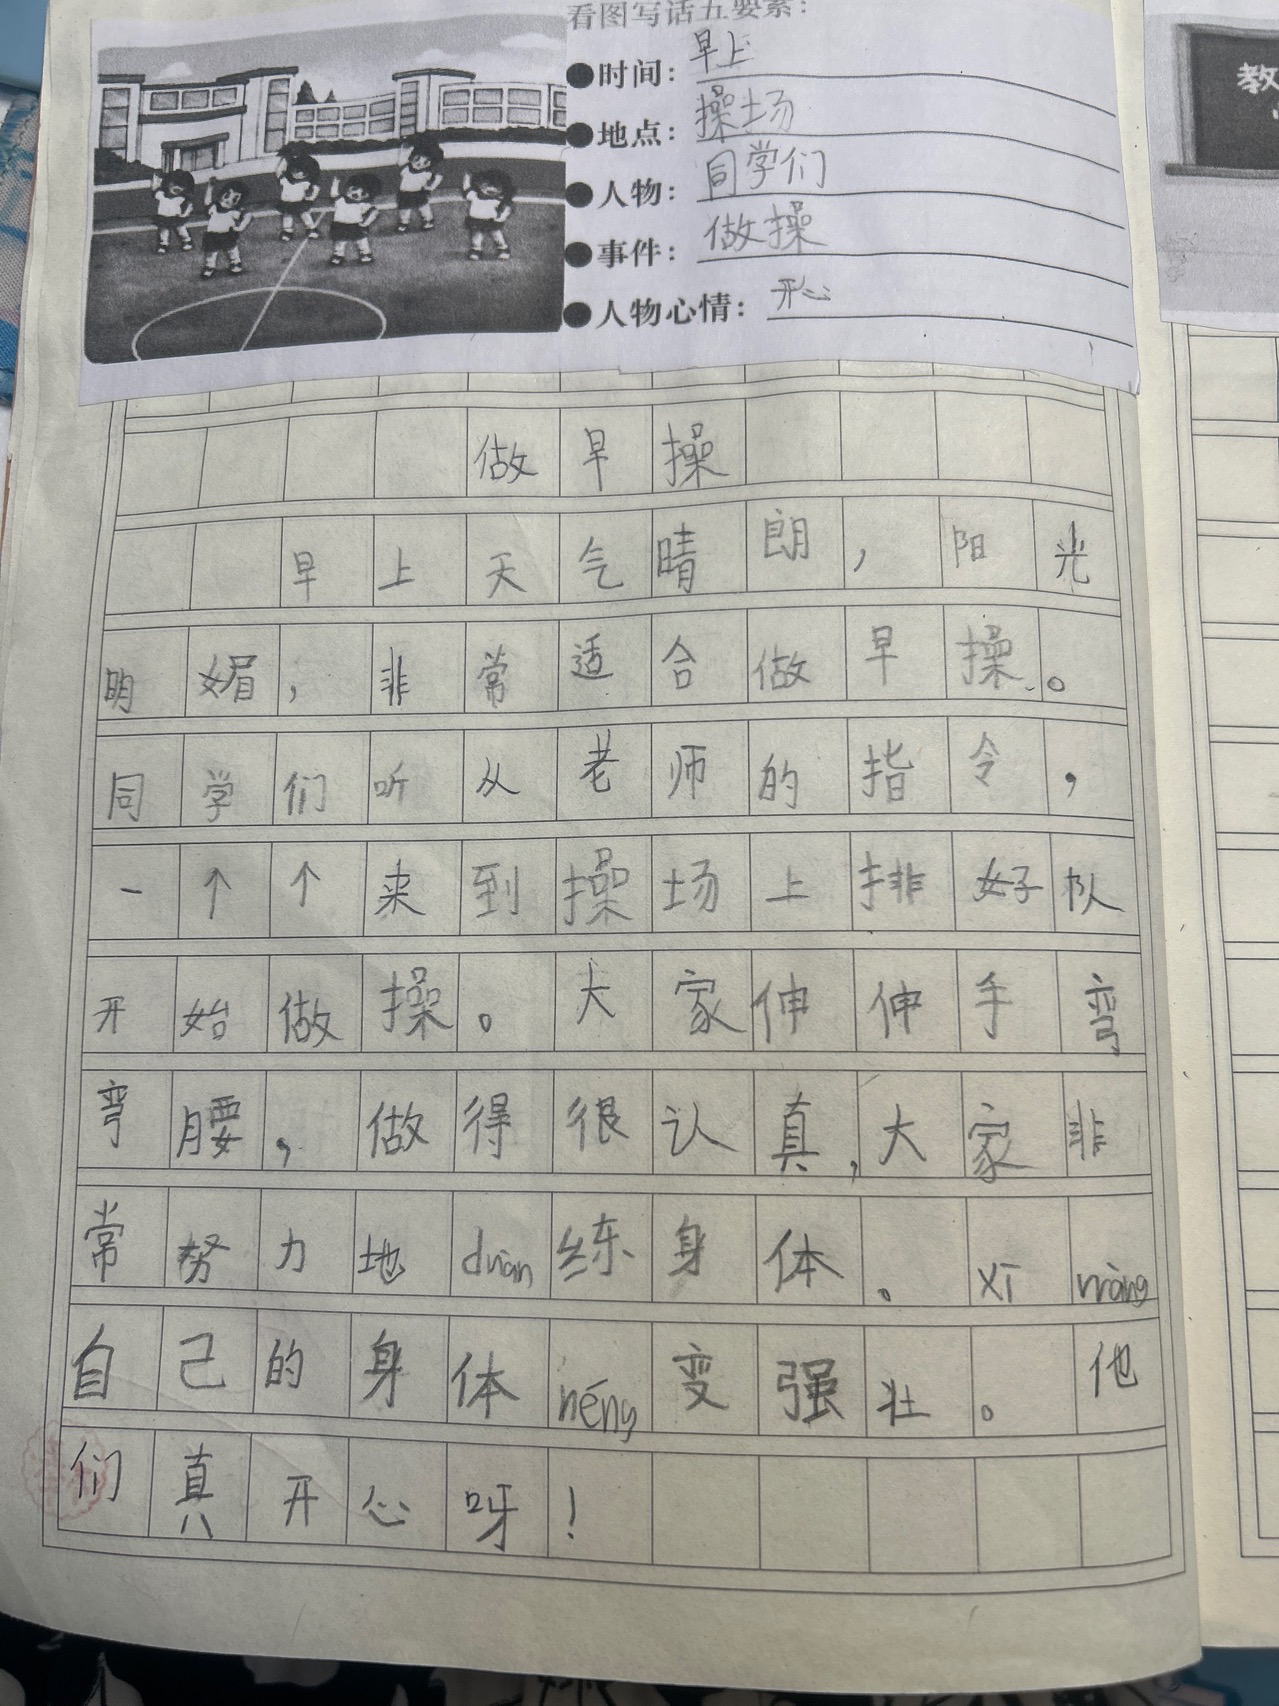 看图写话五要素：
●时间：早上
●地点：操场
●人物：同学们
●事件：做操
●人物心情：开心
教
做早操
早上天气晴朗，阳光
明媚，非常适合做早操。
同学们听从老师的指令，
一个个来到操场上排好队
开始做操。大家伸伸手弯
弯腰，做得很认真，大家非
常努力地duàn练身体。xī wàng
自己的身体néng变强壮。他
们真开心呀！